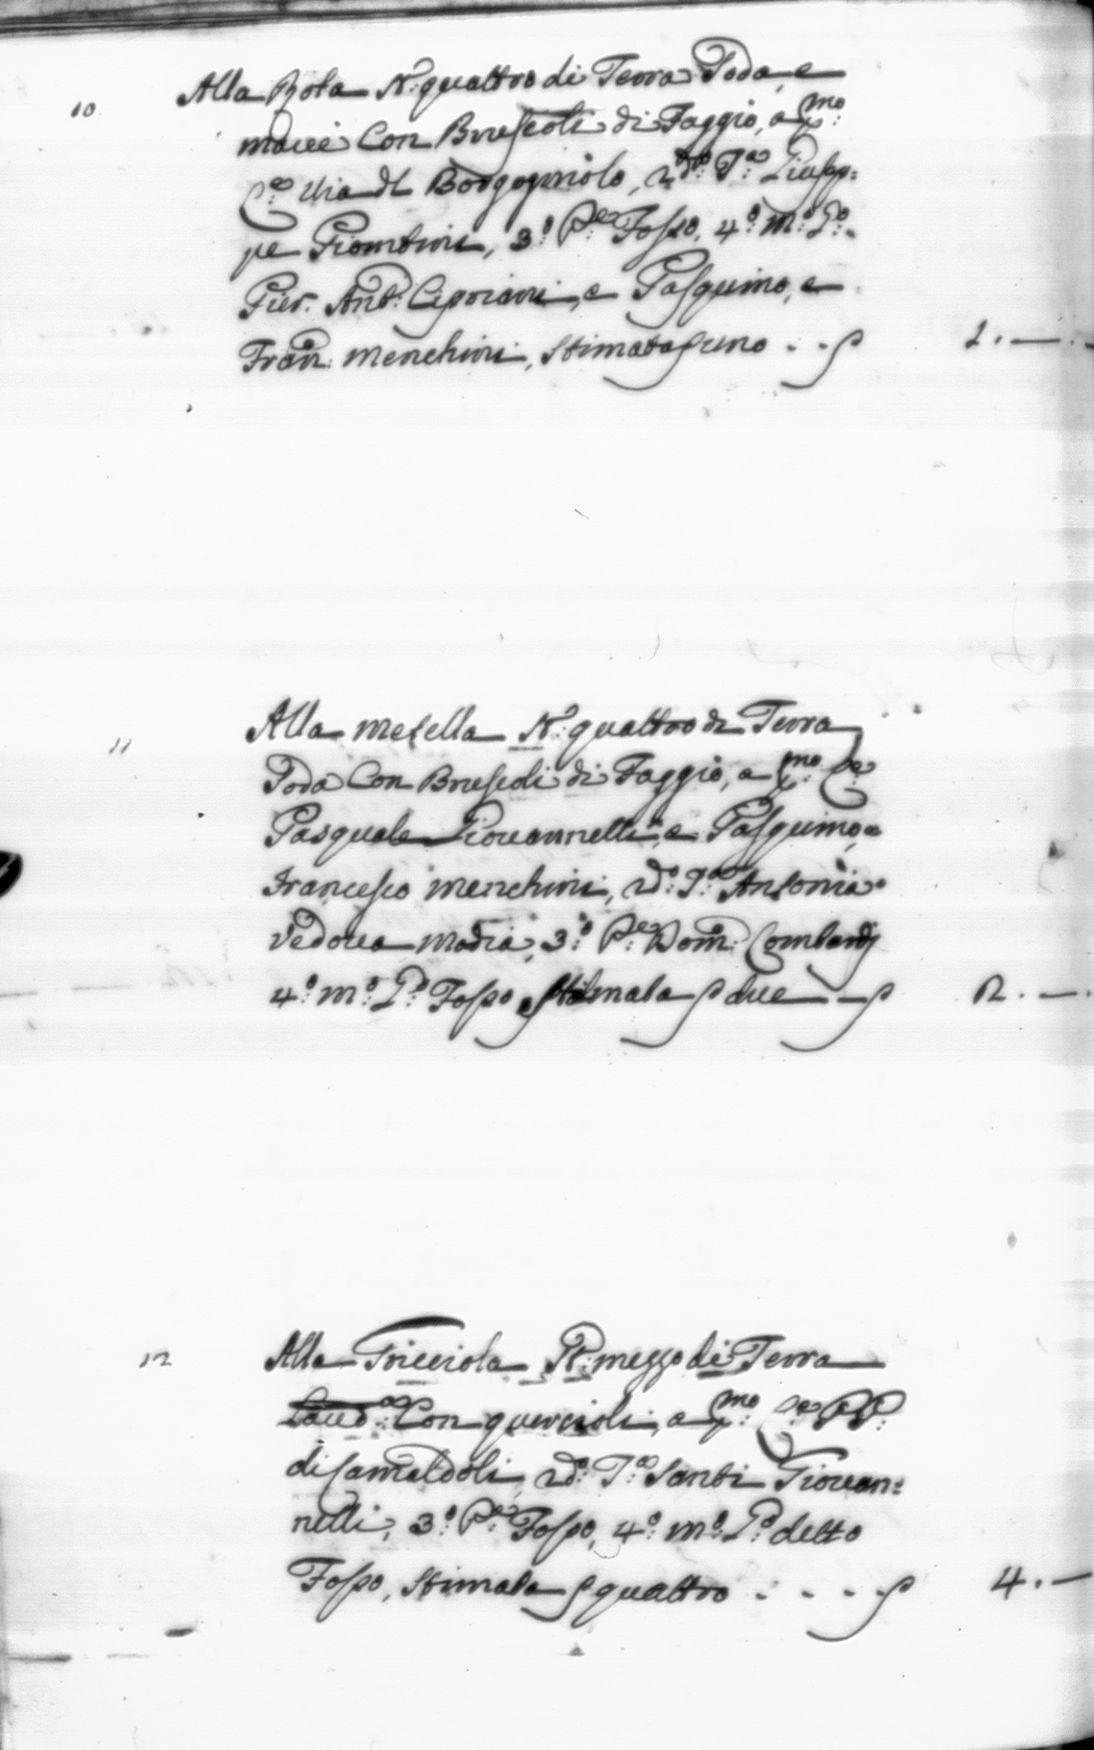 10 Alla Rota N.º quattro di Terra Soda, e
macie Con Bruscoli di Faggio, a p.mo
C.º Via del Borgogniolo, 2.do T.ª Giusep=
pe Giombini, 3.º P.e Fosso, 4.º m.º L.º
Pier. Ant.º Cipriani, e Pasquino, e
Fran.º Menchini, Stimata S uno . . S 1. —
11 Alla Mesella N.º quattro di Terra
Soda Con Bruscoli di Faggio, a p.mo C.º
Pasquale Giovannelli, e Pasquino, e
Francesco Menchini, 2.do T.ª Antonia
Vedova 3.º P.e Dom.º Lombardi
4.º m.º L.º Fosso, Stimata S due — S 2. —
12 Alla Tricciola mezzo di Terra
Laud.ª Con quercioli, a p.mo C.º P.P.
di Camaldoli, 2.do T.ª Santi Giovan=
nelli, 3.º P.e Fosso, 4.º m.º L.º detto
Fosso, Stimata S quattro . . . . S 4. —